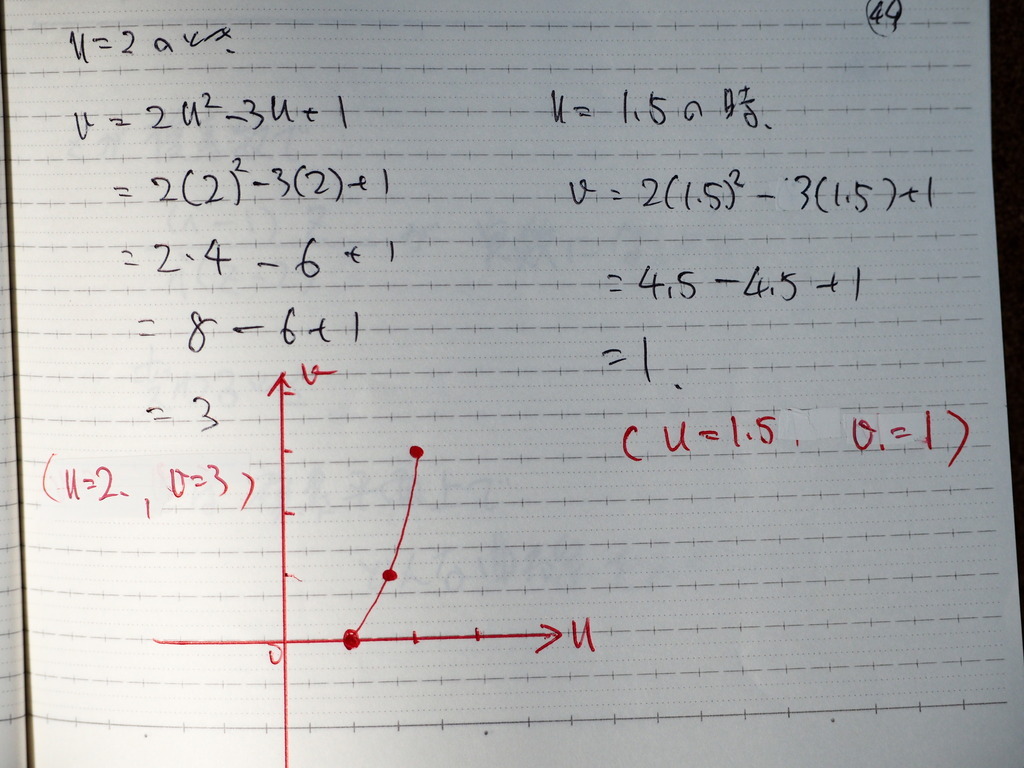 49
u=2 の
v = 2u²-3u+1
= 2(2)²-3(2)+1
= 2·4 - 6 + 1
= 8 - 6 + 1
= 3
(u=2. , v=3)
u = 1.5 の時、
v = 2(1.5)² - 3(1.5)+1
= 4.5 - 4.5 + 1
= 1.
(u=1.5. v.=1)
v
0
u